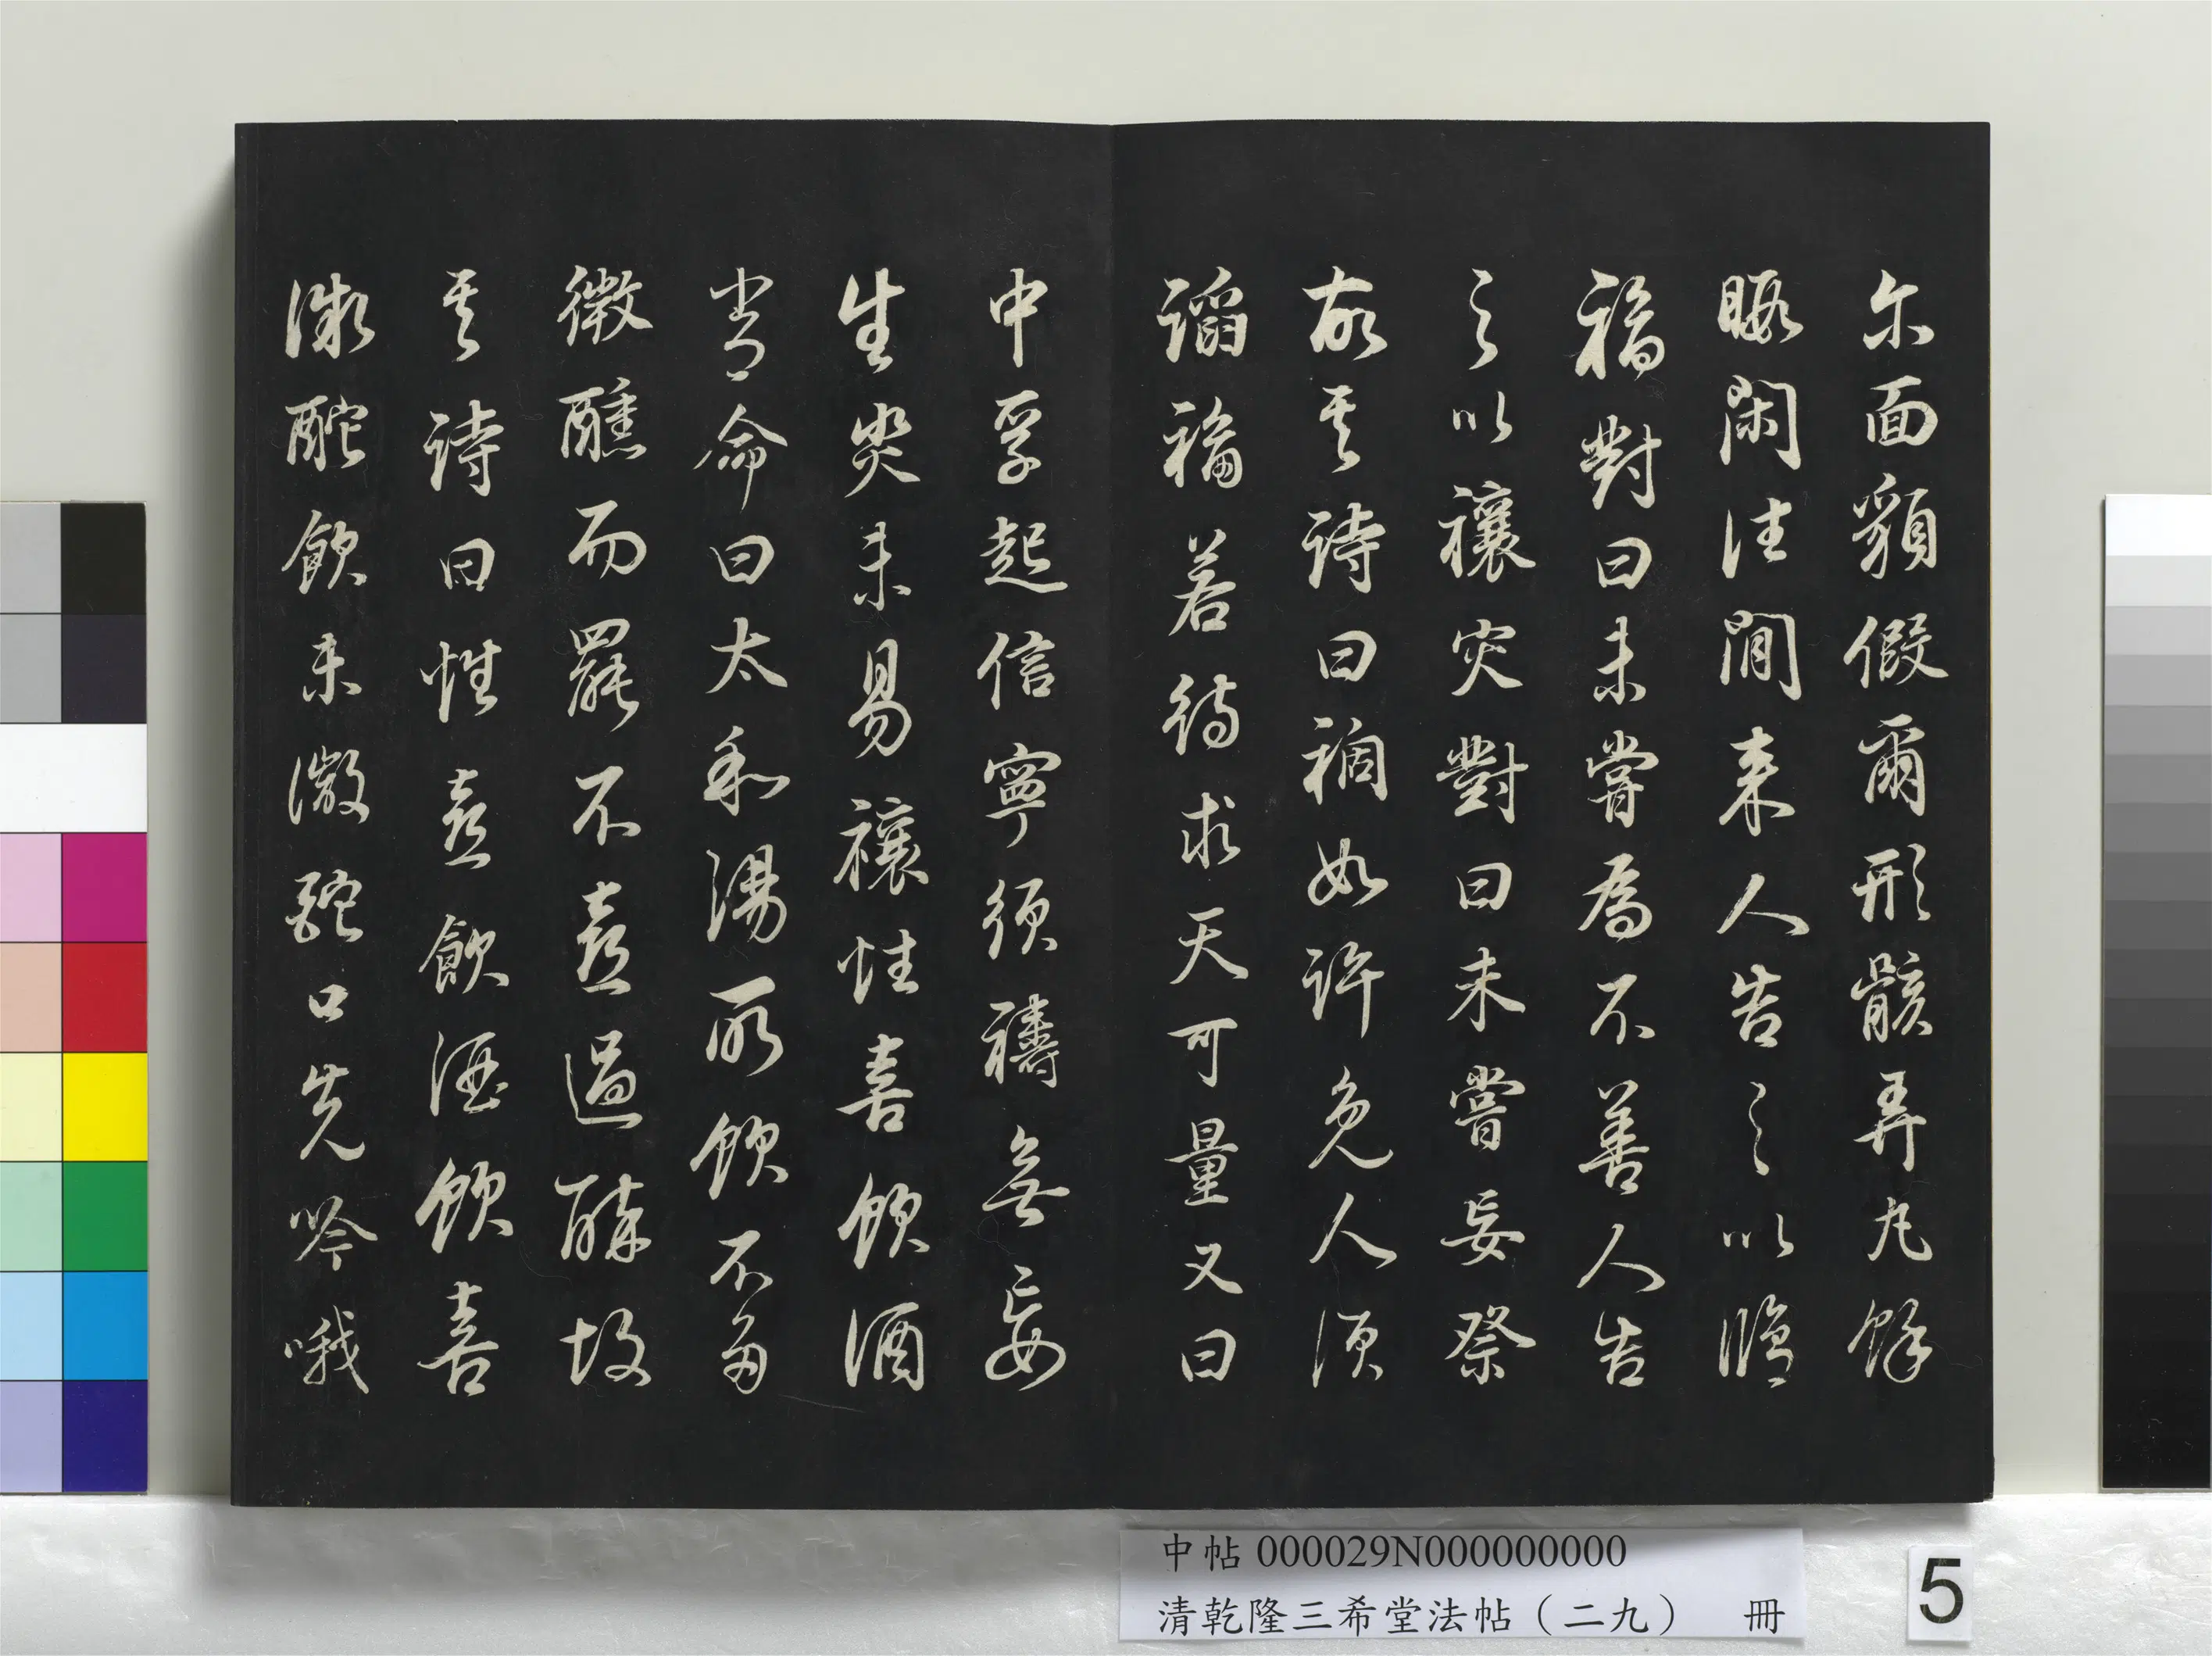 尔面貌假爾形骸弄丸餘
暇閑往閒来人告之以脩
福對曰未嘗為不善人告
之以禳灾對曰未嘗妄祭
故其詩曰禍如許免人須
謟福若待求天可量又曰
中孚起信寧須禱無妄
生災未易禳性喜飲酒
嘗命曰太和湯所飲不多
微醺而罷不喜過醉故
其詩曰性喜飲酒飲喜
微酡飲未微酡口先吟哦
中帖 000029N000000000
清乾隆三希堂法帖（二九） 冊
5